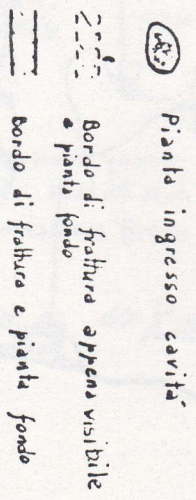 Pianta ingresso cavitá
Bordo di frattura appena visibile
e pianta fondo
Bordo di frattura e pianta fondo